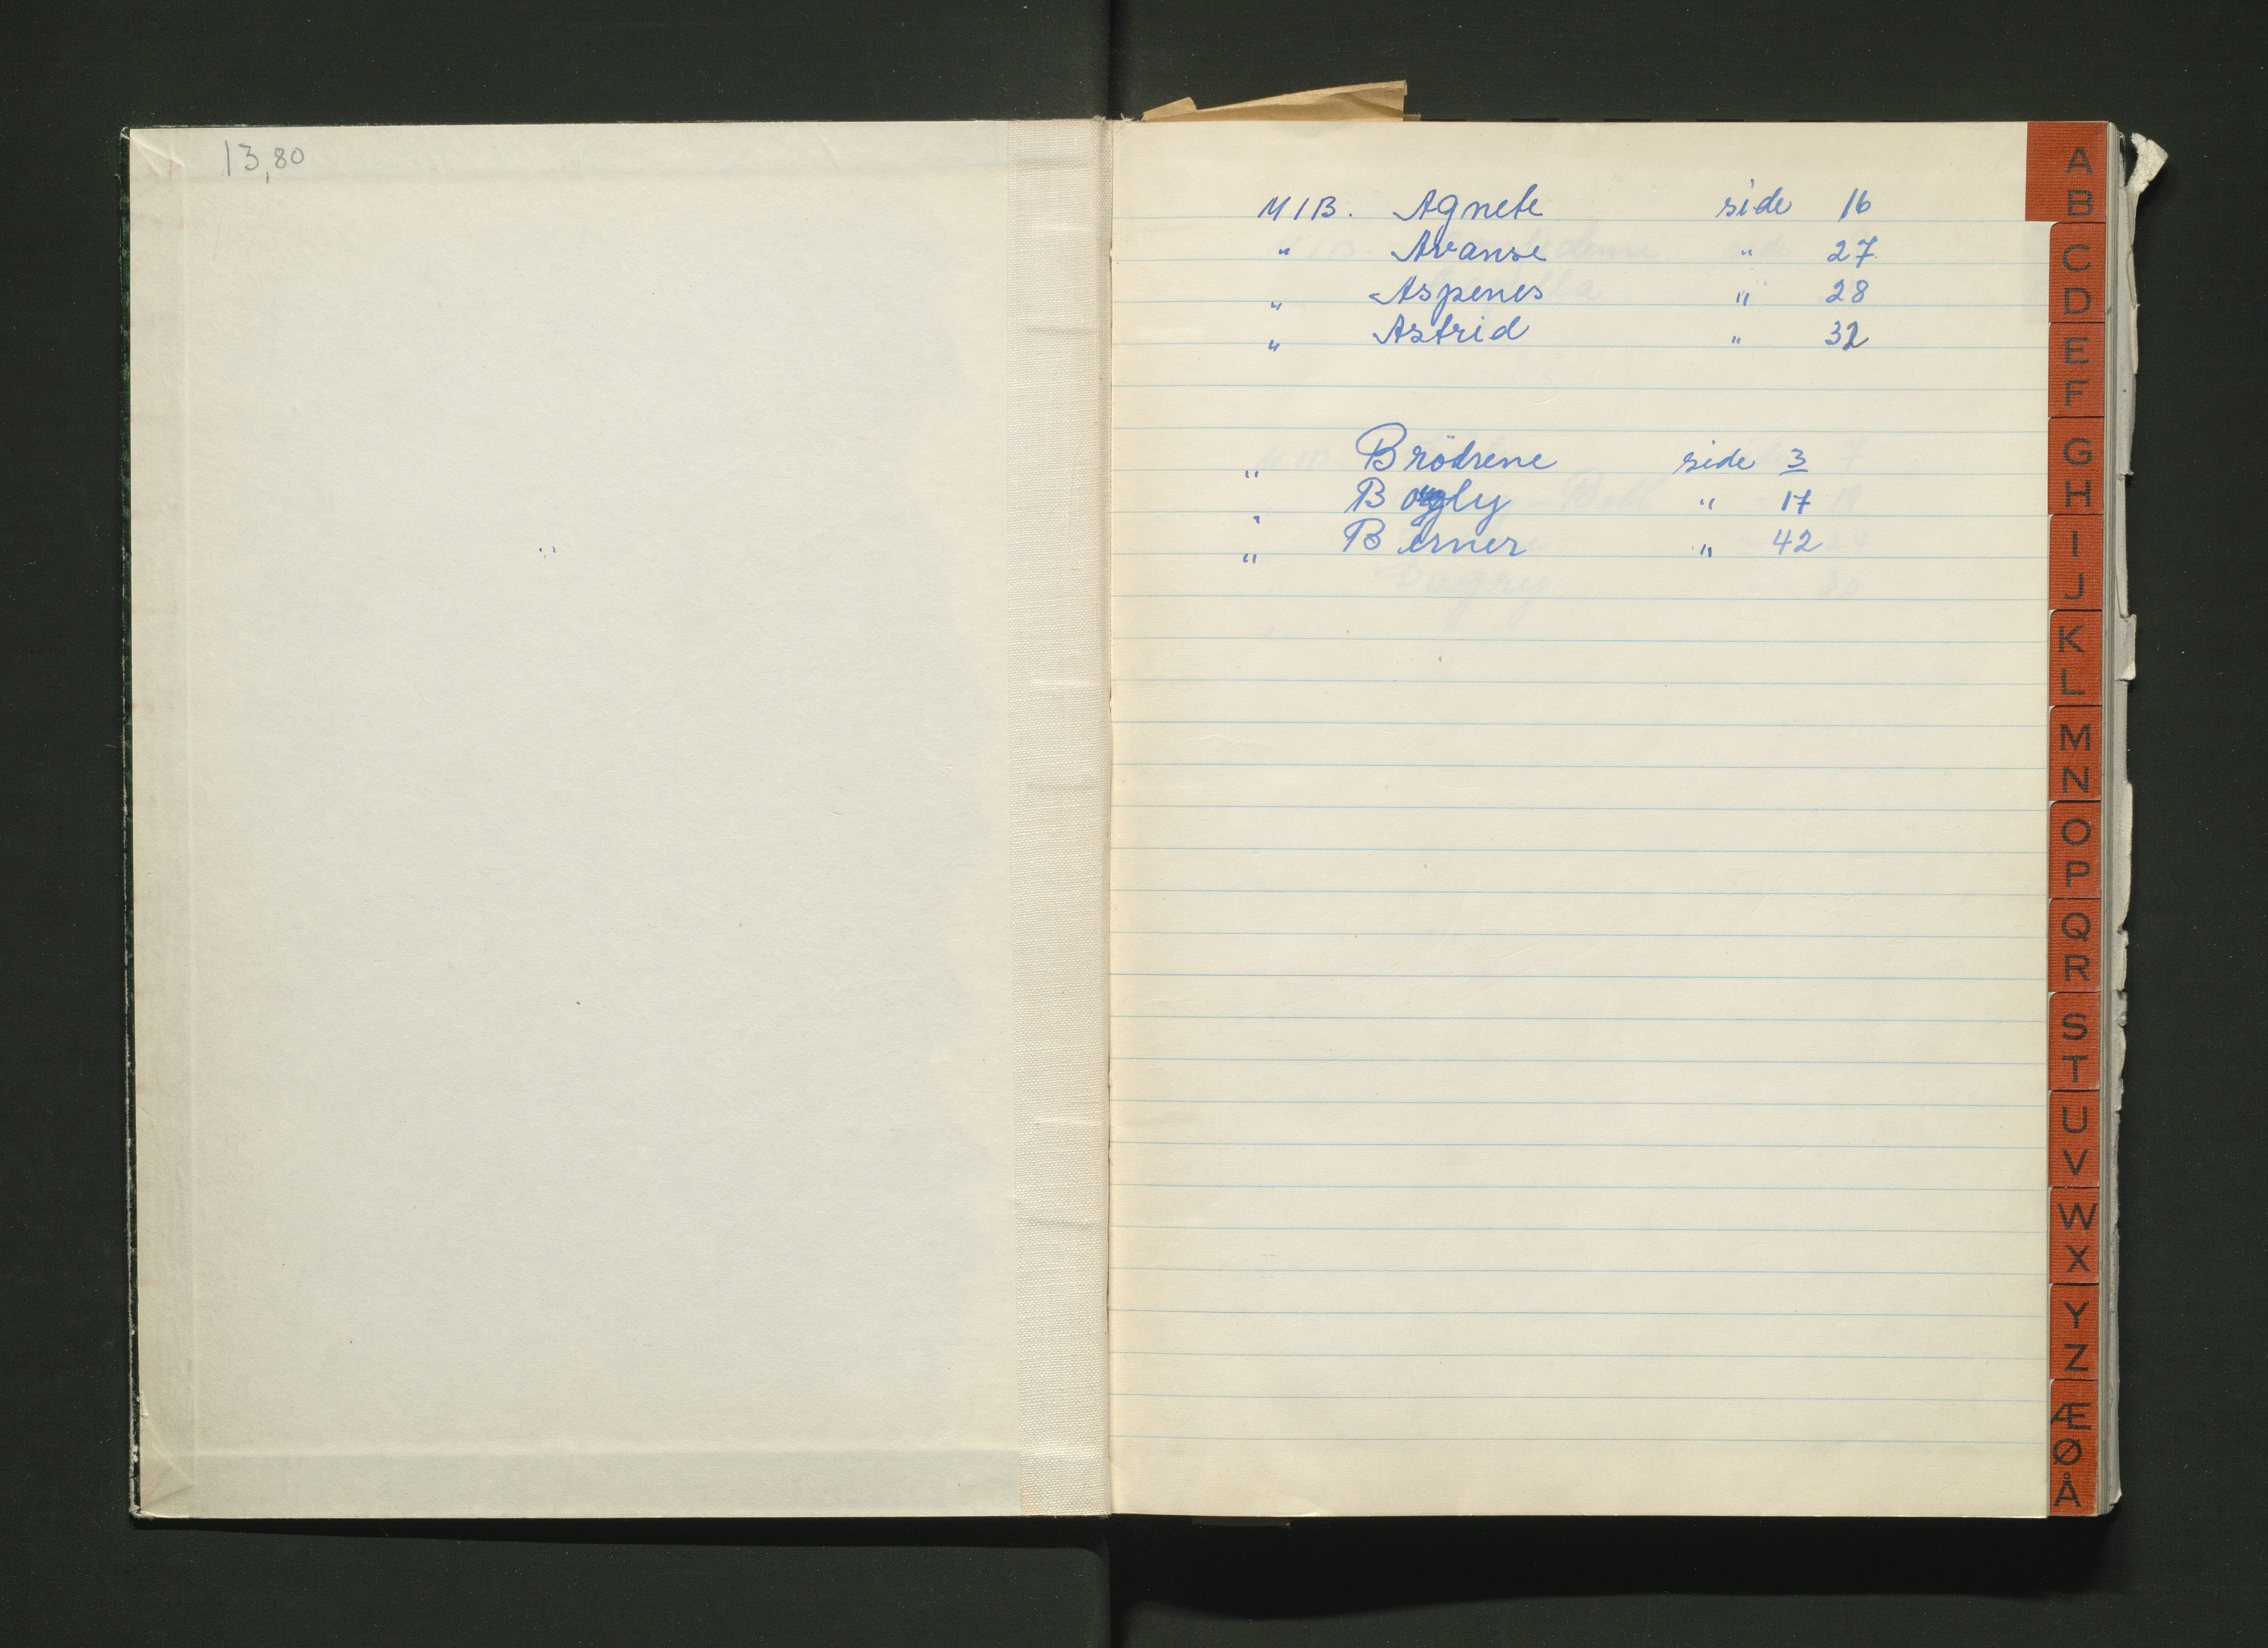 13,80
M/B. Agnete side 16
" Avanse " 27
" Aspenes " 28
" Astrid " 32
" Brödrene side 3
" ly " 17
" Berner " 42
A
B
C
D
E
F
G
H
I
J
K
L
M
N
O
P
Q
R
S
T
U
V
W
X
Y
Z
Æ
Ø
Å